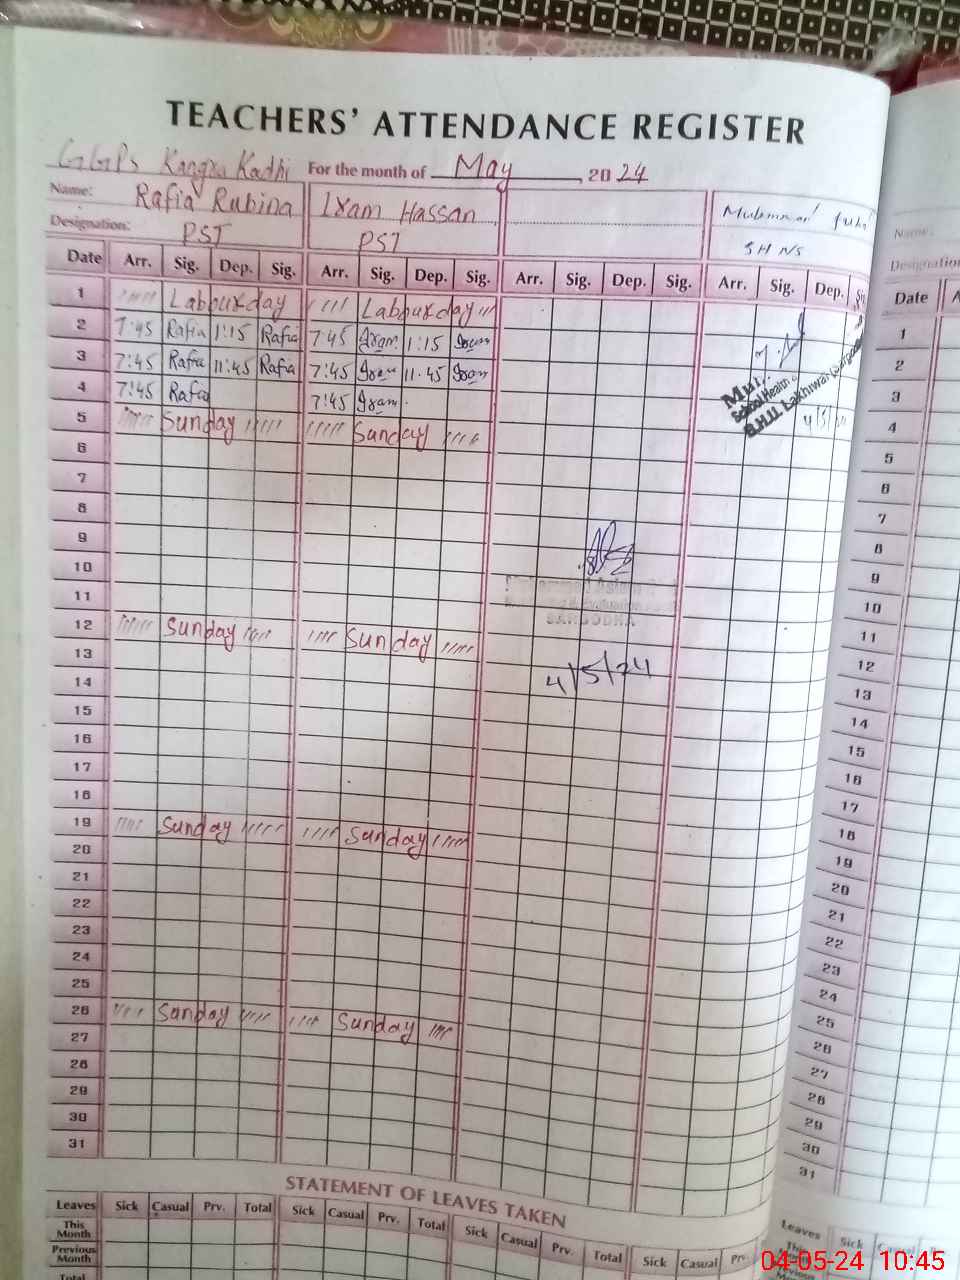 TEACHERS' ATTENDANCE REGISTER
GGPS Kangra Kadhi For the month of May, 2024
Name: Rafia Rubina Iram Hassan
Designation: PST PST SHNS
Date Arr. Sig. Dep. Sig. Arr. Sig. Dep. Sig. Arr. Sig. Dep. Sig. Arr. Sig. Dep. Sig.
1 Labourday Labourday
2 7:45 Rafia 1:15 Rafia 7:45 Iram 1:15 Iram
3 7:45 Rafia 11:45 Rafia 7:45 Iram 11.45 Iram
4 7:45 Rafia 7:45 Iram
5 Sunday Sunday
6
7
8
9
10
11
12 Sunday Sunday
13
14
15
16
17
18
19 Sunday Sunday
20
21
22
23
24
25
26 Sunday Sunday
27
28
29
30
31
School Health
B.H.U. Lakhiwal
SARGODHA
4/5/24
STATEMENT OF LEAVES TAKEN
Leaves Sick Casual Prv. Total Sick Casual Prv. Total Sick Casual Prv. Total Sick Casual Prv.
This Month
Previous Month
Total
Name:
Designation
Date
1
2
3
4
5
6
7
8
9
10
11
12
13
14
15
16
17
18
19
20
21
22
23
24
25
26
27
28
29
30
31
Leaves Sick
04-05-24 10:45